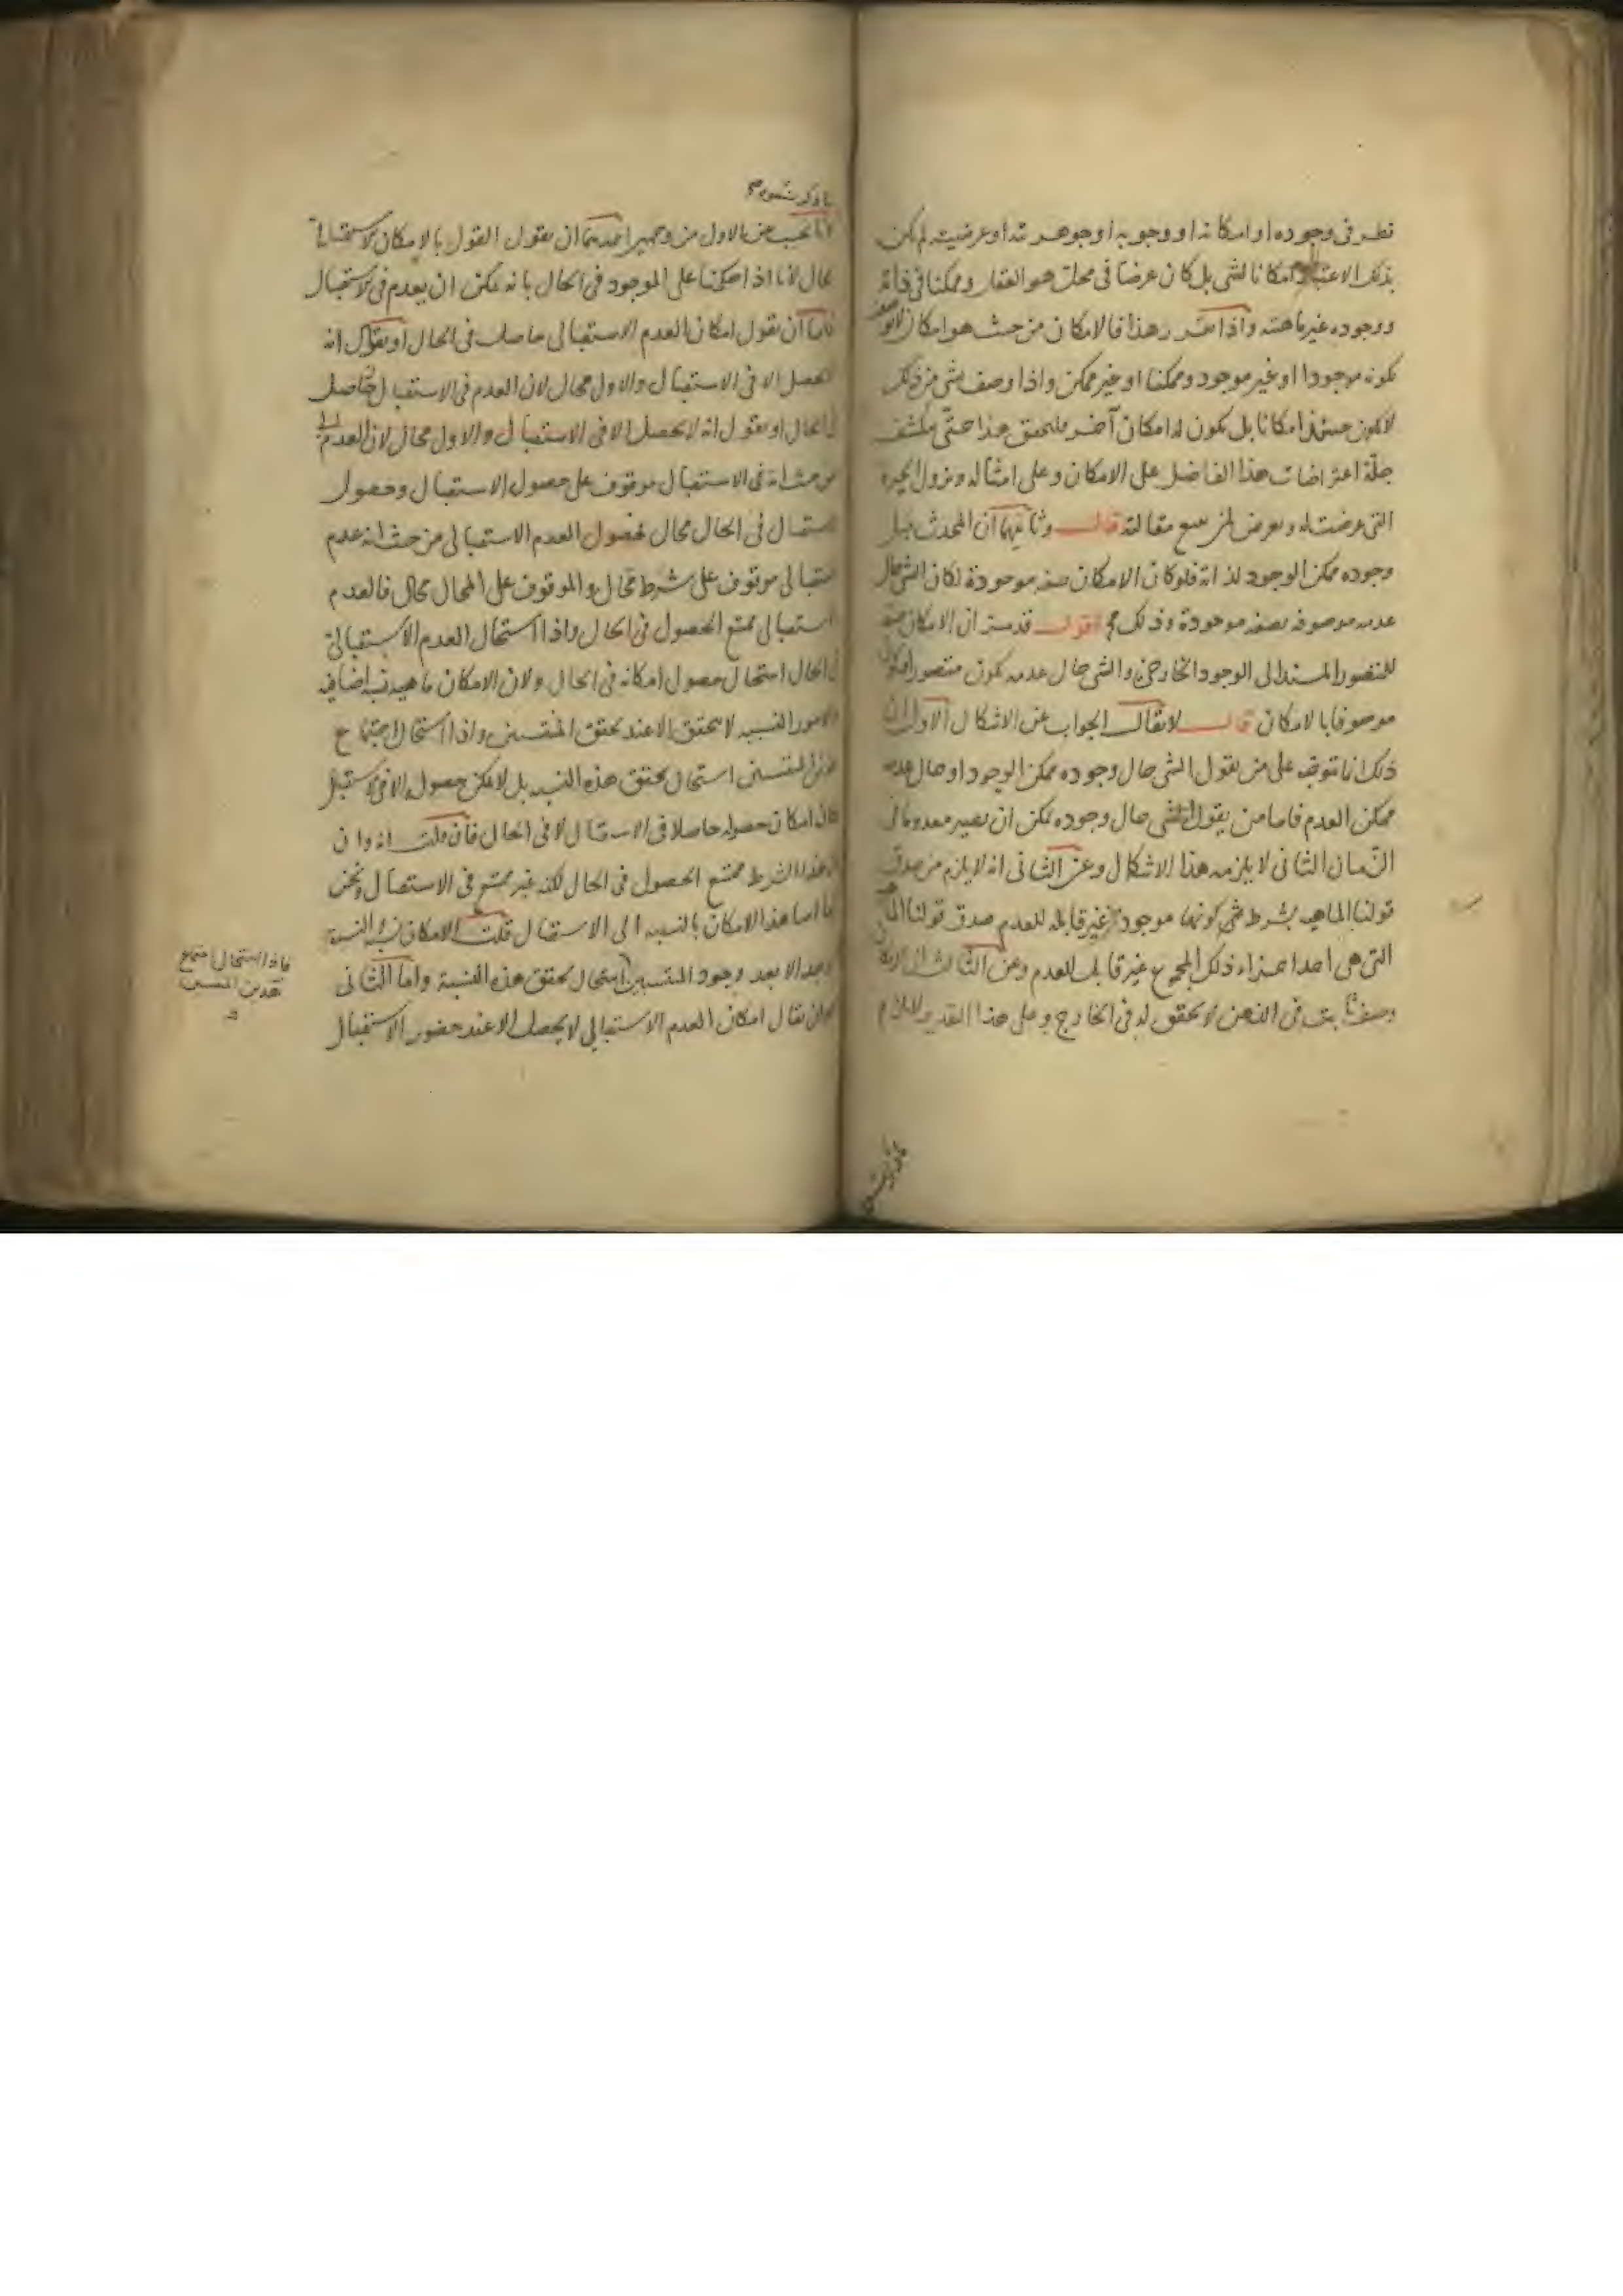 نظر فى وجوده او امكانه او وجوبه او جوهريته او عرضيته لم يكن
بذلك الاعتبار امكانا لشى بل كان عرضا فى محل هو العقل وممكنا فى ذاته
ووجوده غير ماهيته واذا تقرر هذا فالامكان من حيث هو امكان لا يوصف
بكونه موجودا او غير موجود وممكنا او غير ممكن واذا وصف بشى من ذلك
لا يكون حينئذ امكانا بل يكون له امكان آخر فليحقق هذا حتى ينكشف
جلة اعتراضات هذا الفاضل على الامكان وعلى امثاله ويزول الحيرة
التى عرضت له ويعرض لمن يسمع مقالته قال وثانيها ان المحدث قبل
وجوده ممكن الوجود لذاته فلو كان الامكان صفة موجودة لكان الشى حال
عدمه موصوفا بصفة موجودة وذلك مح اقول قد مر ان الامكان صفة
للمتصور المستند الى الوجود الخارجى والشى حال عدمه يكون متصورا
موصوفا بالامكان قال لا يقال الجواب عن الاشكال الاول ان
ذلك انما يتوجه على من يقول الشى حال وجوده ممكن الوجود او حال عدمه
ممكن العدم فاما من يقول الشى حال وجوده ممكن ان يصير معدوما فى
الزمان الثانى لا يلزمه هذا الاشكال وعن الثانى انه لا يلزم من صدق
قولنا الماهية بشرط كونها موجودة غير قابلة للعدم صدق قولنا الماهية
التى هى احد اجزاء ذلك المجموع غير قابلة للعدم وعن الثالث ان الامكان
وصف ثابت فى الذهن لا تحقق له فى الخارج وعلى هذا التقدير لا يلزم
ما ذكرتموه
لانا نجيب عن الاول من وجهين احدهما ان نقول القول بالامكان الاستقبالى
محال لانا اذا حكمنا على الموجود فى الحال بانه يمكن ان يعدم فى الاستقبال
فاما ان نقول امكان العدم الاستقبالى حاصل فى الحال او نقول انه
لا يحصل الا فى الاستقبال والاول محال لان العدم فى الاستقبال حاصل
فى الحال او نقول انه لا يحصل الا فى الاستقبال والاول محال لان العدم
من حيث انه فى الاستقبال موقوف على حصول الاستقبال وحصول
الاستقبال فى الحال محال فحصول العدم الاستقبالى من حيث انه عدم
استقبالى موقوف على شرط محال والموقوف على المحال محال فالعدم
الاستقبالى ممتنع الحصول فى الحال واذا استحال العدم الاستقبالى
فى الحال استحال حصول امكانه فى الحال ولان الامكان ماهية نسبية اضافية
والامور النسبية لا تتحقق الا عند تحقق المنتسبين واذا استحال اجتماع
هذين المنتسبين استحال تحقق هذه النسبة بل لا يمكن حصوله الا فى الاستقبال
كان امكان حصوله حاصلا فى الاستقبال لا فى الحال فان قلت انه وان
كان هذا الشرط ممتنع الحصول فى الحال لكنه غير ممتنع فى الاستقبال ونحن
هذا الامكان بالنسبة الى الاستقبال قلت الامكان نسبة والنسبة
لا توجد الا بعد وجود المنتسبين استحال تحقق هذه النسبة واما الثانى
وهو ان يقال امكان العدم الاستقبالى لا يحصل الا عند حضور الاستقبال
فاذا استحال اجتماع
هذين المنتسبين